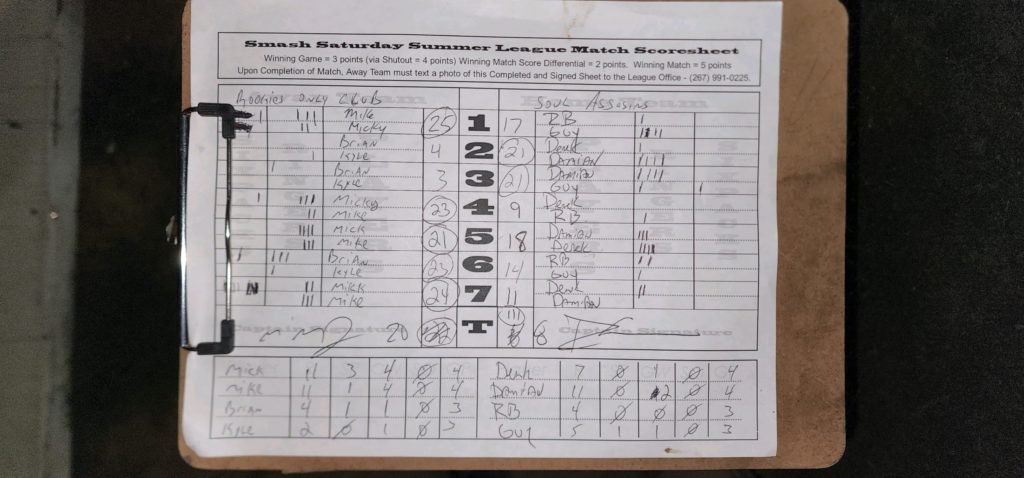 Smash Saturday Summer League Match Scoresheet
Winning Game = 3 points (via Shutout = 4 points) Winning Match Score Differential = 2 points. Winning Match = 5 points
Upon Completion of Match, Away Team must text a photo of this Completed and Signed Sheet to the League Office - (267) 991-0225.
Rookies only Club Soul Assosins
Mike 25 1 17 RB
Micky Guy
Brian 4 2 21 Derek
Kyle Damian
Brian 3 3 21 Damian
Kyle Guy
Micky 23 4 9 Derek
Mike RB
Mick 21 5 18 Damian
Mike Derek
Brian 23 6 14 RB
Kyle Guy
Mick 24 7 11 Derek
Mike Damian
Captain Signature 20 T 8 Captain Signature
Mick 11 3 4 0 4 Derek 7 0 1 0 4
Mike 11 1 4 0 4 Damian 11 0 2 0 4
Brian 4 1 1 0 3 RB 4 0 0 0 3
Kyle 2 0 1 0 3 Guy 5 1 1 0 3